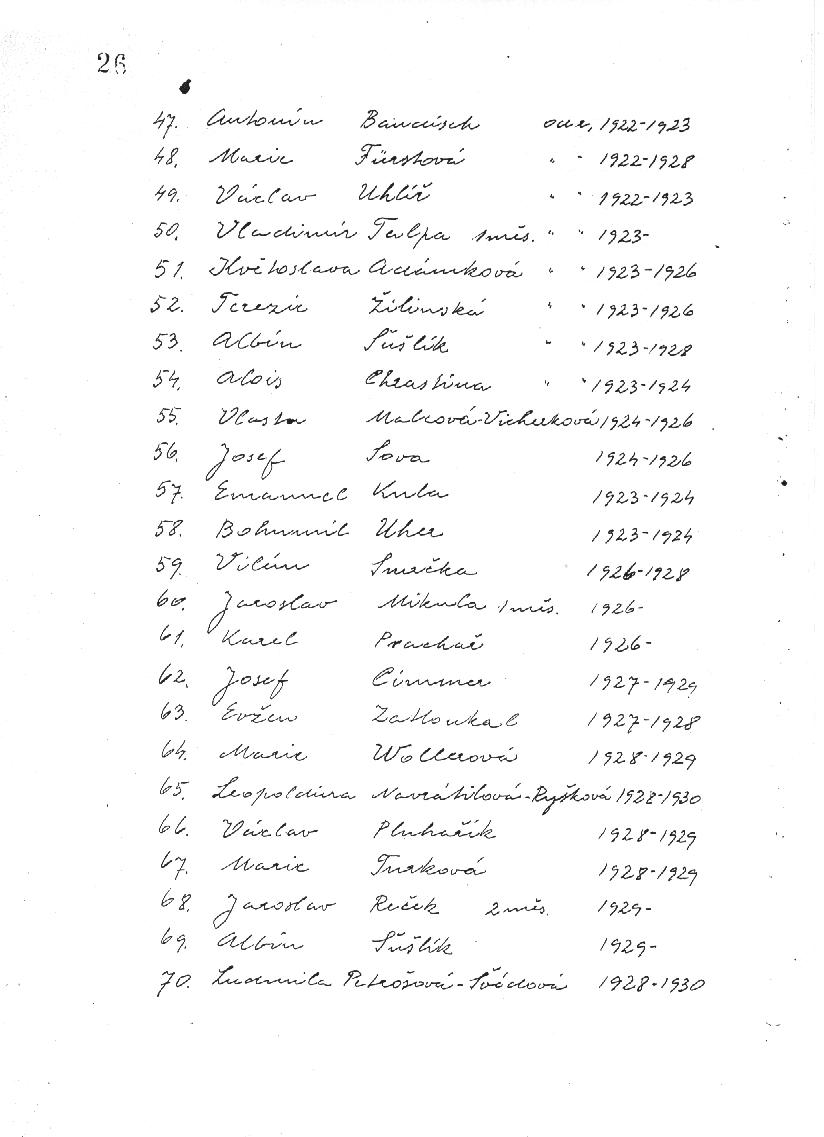 26
47. Antonín Bandisch 1922-1923
48. Marie Fürstová " " 1922-1928
49. Václav Uhlíř " " 1922-1923
50. Vladimír Talpa 1měs. " " 1923-
51. Květoslava Adámková " " 1923-1926
52. Terezie Žilinská " " 1923-1926
53. Albín Šušlík " " 1923-1928
54. Alois Chrastina " " 1923-1924
55. Vlasta 1924-1926
56. Josef Sova 1924-1926
57. Emanuel Kula 1923-1924
58. Bohumil Uher 1923-1924
59. Vilém Smečka 1926-1928
60. Jaroslav Mikula 1měs. 1926-
61. Karel Prachař 1926-
62. Josef Cimmer 1927-1929
63. Evžen Zatloukal 1927-1928
64. Marie Wollerová 1928-1929
65. Leopoldina Navrátilová-Ryšková 1928-1930
66. Václav Pluhařík 1928-1929
67. Marie Turková 1928-1929
68. Jaroslav Reček 2měs. 1929-
69. Albín Šušlík 1929-
70. Ludmila Petrošová-Švédová 1928-1930